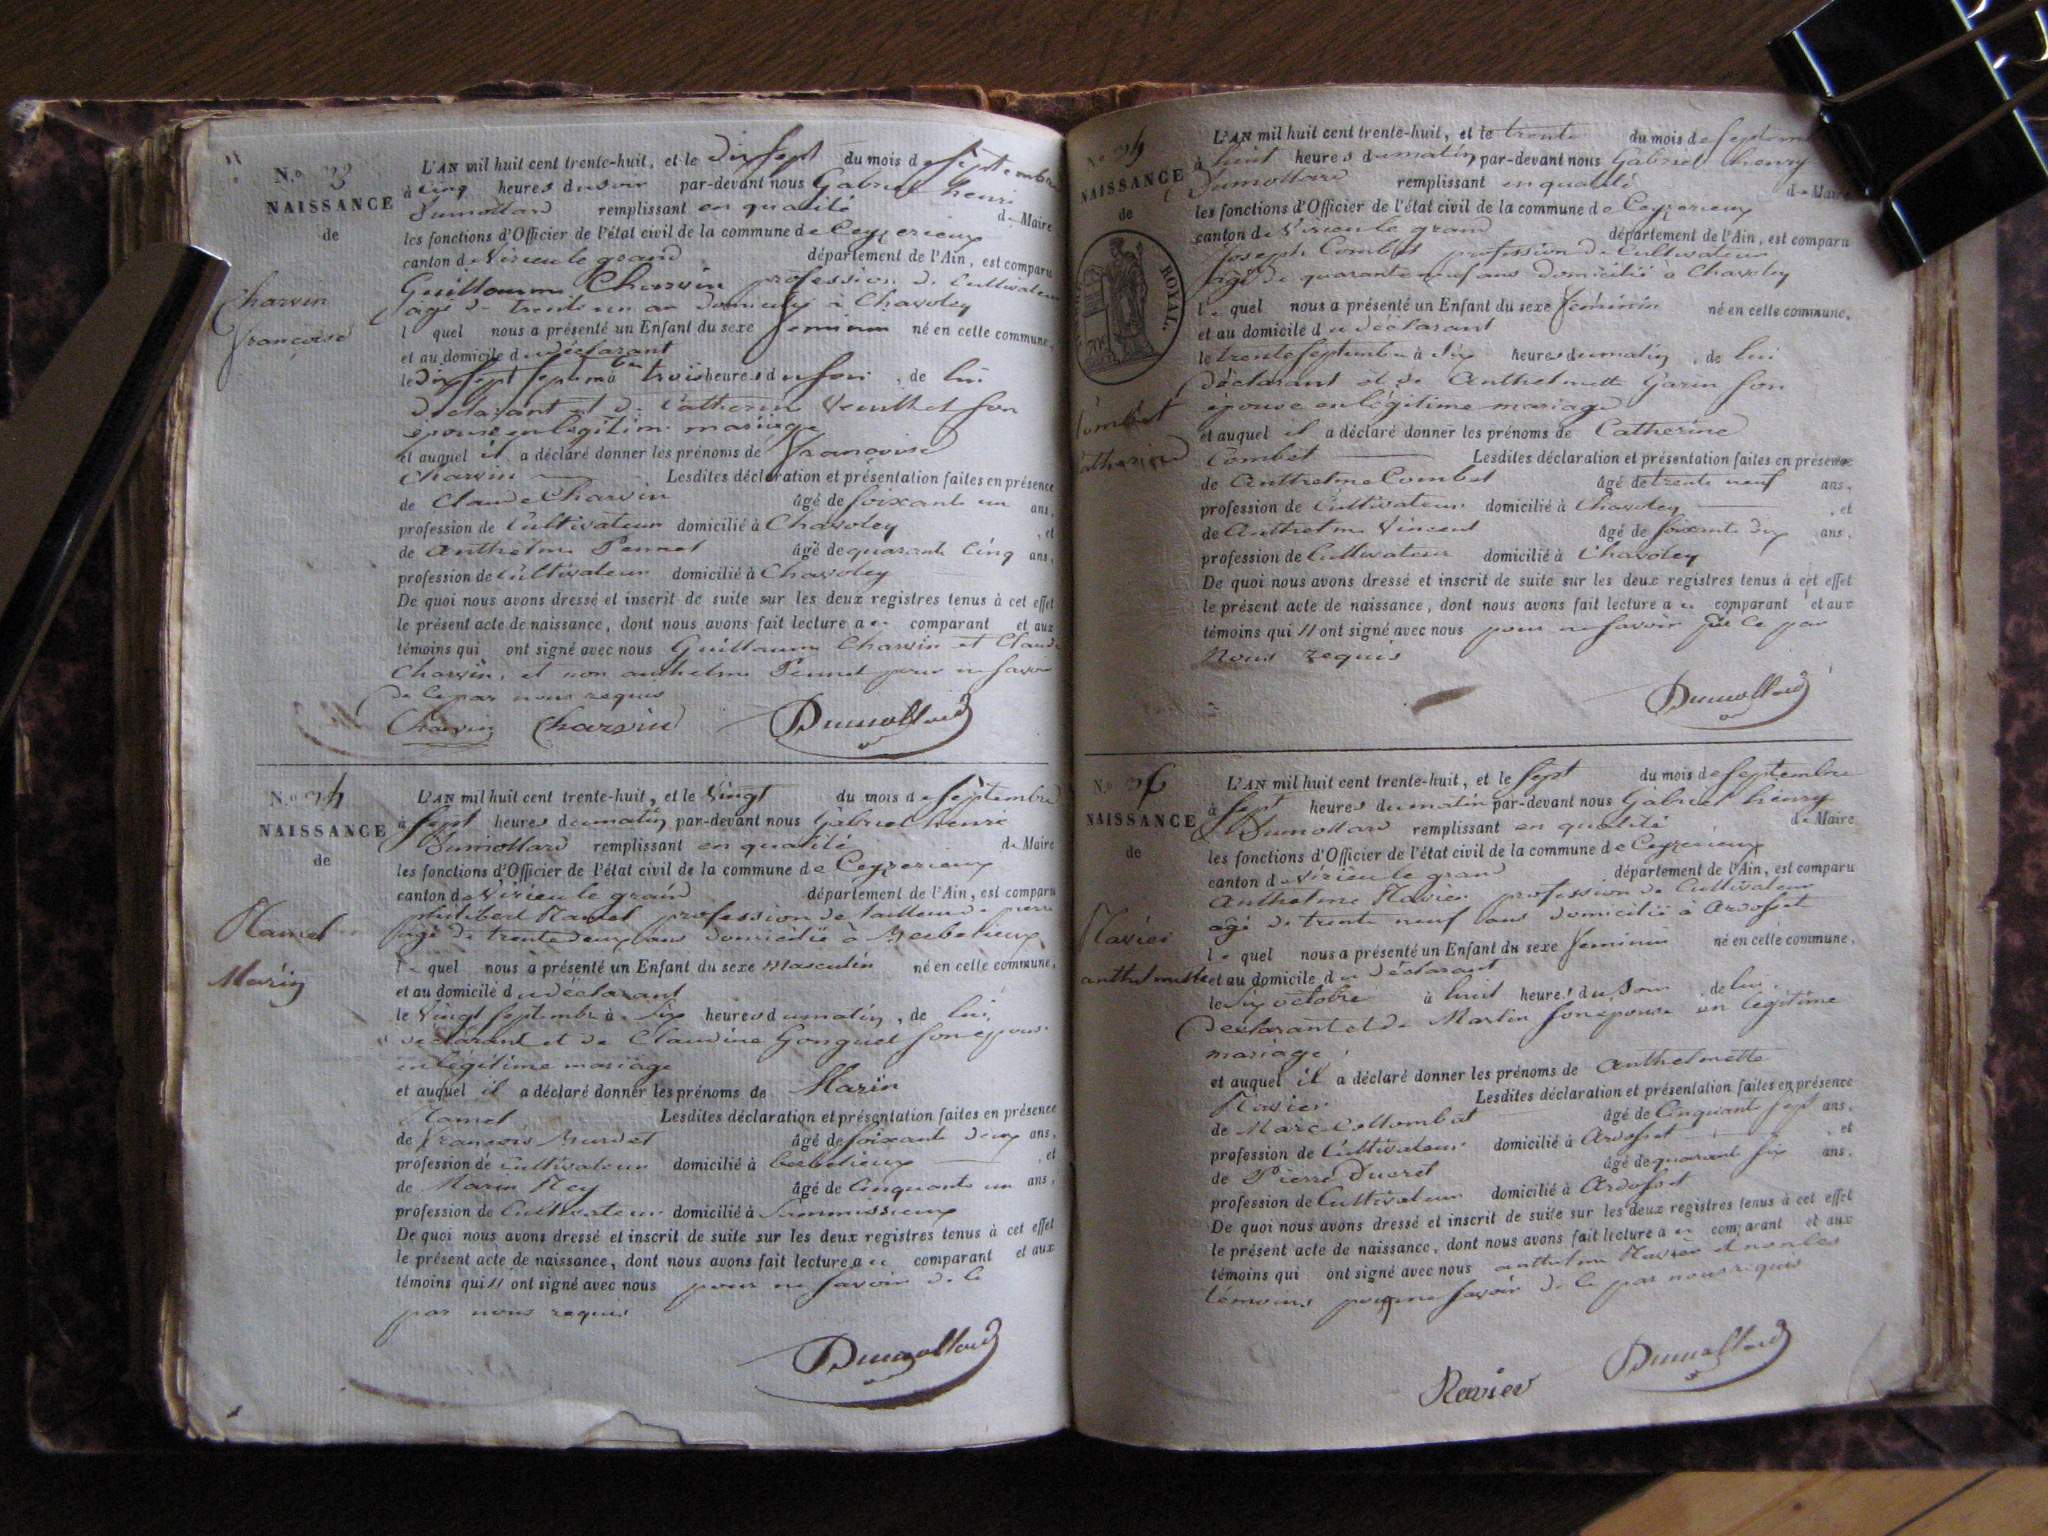 N.o 33
NAISSANCE
de
Charvin
françoise
L'AN mil huit cent trente-huit, et le dix sept du mois de septembre
à cinq heures du soir par-devant nous Gabriel henri
Dumollard remplissant en qualité de Maire
les fonctions d'Officier de l'état civil de la commune de Ceyzerieux
canton de Virieu le grand département de l'Ain, est comparu
Guillaume Charvin profession de Cultivateur
agé de trente un an domicilié à Chavoley
lequel nous a présenté un Enfant du sexe féminin né en cette commune,
et au domicile du déclarant
le dix sept septembre à trois heures du soir, de lui
déclarant et de Catherine son
épouse en légitime mariage
et auquel il a déclaré donner les prénoms de françoise
Charvin Lesdites déclaration et présentation faites en présence
de Claude Charvin âgé de soixante un ans,
profession de Cultivateur domicilié à Chavoley, et
de anthelme Pennet âgé de quarante Cinq ans,
profession de Cultivateur domicilié à Chavoley
De quoi nous avons dressé et inscrit de suite sur les deux registres tenus à cet effet
le présent acte de naissance, dont nous avons fait lecture au comparant et aux
témoins qui ont signé avec nous Guillaume Charvin et Claude
Charvin, et non anthelme Pennet pour ne savoir
de ce par nous requis
Charvin Charvin Dumollard
N.o 34
NAISSANCE
de
Ramel
Marin
L'AN mil huit cent trente-huit, et le vingt du mois de septembre
à sept heures du matin par-devant nous Gabriel henri
Dumollard remplissant en qualité de Maire
les fonctions d'Officier de l'état civil de la commune de Ceyzerieux
canton de Virieu le grand département de l'Ain, est comparu
philibert Ramel profession de tailleur de pierre
agé de trente deux ans domicilié à
lequel nous a présenté un Enfant du sexe masculin né en cette commune,
et au domicile du déclarant
le vingt septembre à six heures du matin, de lui
déclarant et de Claudine Gonguet son epouse
en légitime mariage
et auquel il a déclaré donner les prénoms de Marin
Ramel Lesdites déclaration et présentation faites en présence
de françois âgé de soixante deux ans,
profession de Cultivateur domicilié à, et
de Marin Rey âgé de Cinquante un ans,
profession de Cultivateur domicilié à
De quoi nous avons dressé et inscrit de suite sur les deux registres tenus à cet effet
le présent acte de naissance, dont nous avons fait lecture au comparant et aux
témoins qui n ont signé avec nous pour ne savoir de ce
par nous requis
Dumollard
NAISSANCE
de
ROYAL.
Combet
Catherine
L'AN mil huit cent trente-huit, et le trente du mois de septembre
à huit heures du matin par-devant nous Gabriel henry
Dumollard remplissant en qualité de Maire
les fonctions d'Officier de l'état civil de la commune de Ceyzerieux
canton de Virieu le grand département de l'Ain, est comparu
joseph Combet profession de Cultivateur
agé de quarante neuf ans domicilié à Chavoley
lequel nous a présenté un Enfant du sexe féminin né en cette commune,
et au domicile du déclarant
le trente septembre à six heures du matin, de lui
déclarant et de anthelmette Garin son
épouse en légitime mariage
et auquel il a déclaré donner les prénoms de Catherine
Combet Lesdites déclaration et présentation faites en présence
de anthelme Combet âgé de trente neuf ans,
profession de Cultivateur domicilié à Chavoley, et
de anthelme Vincent âgé de soixante dix ans,
profession de Cultivateur domicilié à Chavoley
De quoi nous avons dressé et inscrit de suite sur les deux registres tenus à cet effet
le présent acte de naissance, dont nous avons fait lecture au comparant et aux
témoins qui n ont signé avec nous pour ne savoir de ce par
Nous requis
Dumollard
N.o 36
NAISSANCE
de
Ravier
anthelmette
L'AN mil huit cent trente-huit, et le sept du mois de septembre
à sept heures du matin par-devant nous Gabriel henry
Dumollard remplissant en qualité de Maire
les fonctions d'Officier de l'état civil de la commune de Ceyzerieux
canton de Virieu le grand département de l'Ain, est comparu
anthelme Ravier profession de Cultivateur
agé de trente neuf ans domicilié à Ardosset
lequel nous a présenté un Enfant du sexe féminin né en cette commune,
et au domicile du déclarant
le six octobre à huit heures du Soir, de lui
déclarant et de Martin son epouse en légitime
mariage
et auquel il a déclaré donner les prénoms de anthelmette
Ravier Lesdites déclaration et présentation faites en présence
de Marc Collombat âgé de Cinquante sept ans,
profession de Cultivateur domicilié à Ardosset, et
de Pierre Ducret âgé de quarante six ans,
profession de Cultivateur domicilié à Ardosset
De quoi nous avons dressé et inscrit de suite sur les deux registres tenus à cet effet
le présent acte de naissance, dont nous avons fait lecture au comparant et aux
témoins qui ont signé avec nous anthelme Ravier et non les
témoins pour ne savoir de ce par nous requis
Dumollard
Ravier